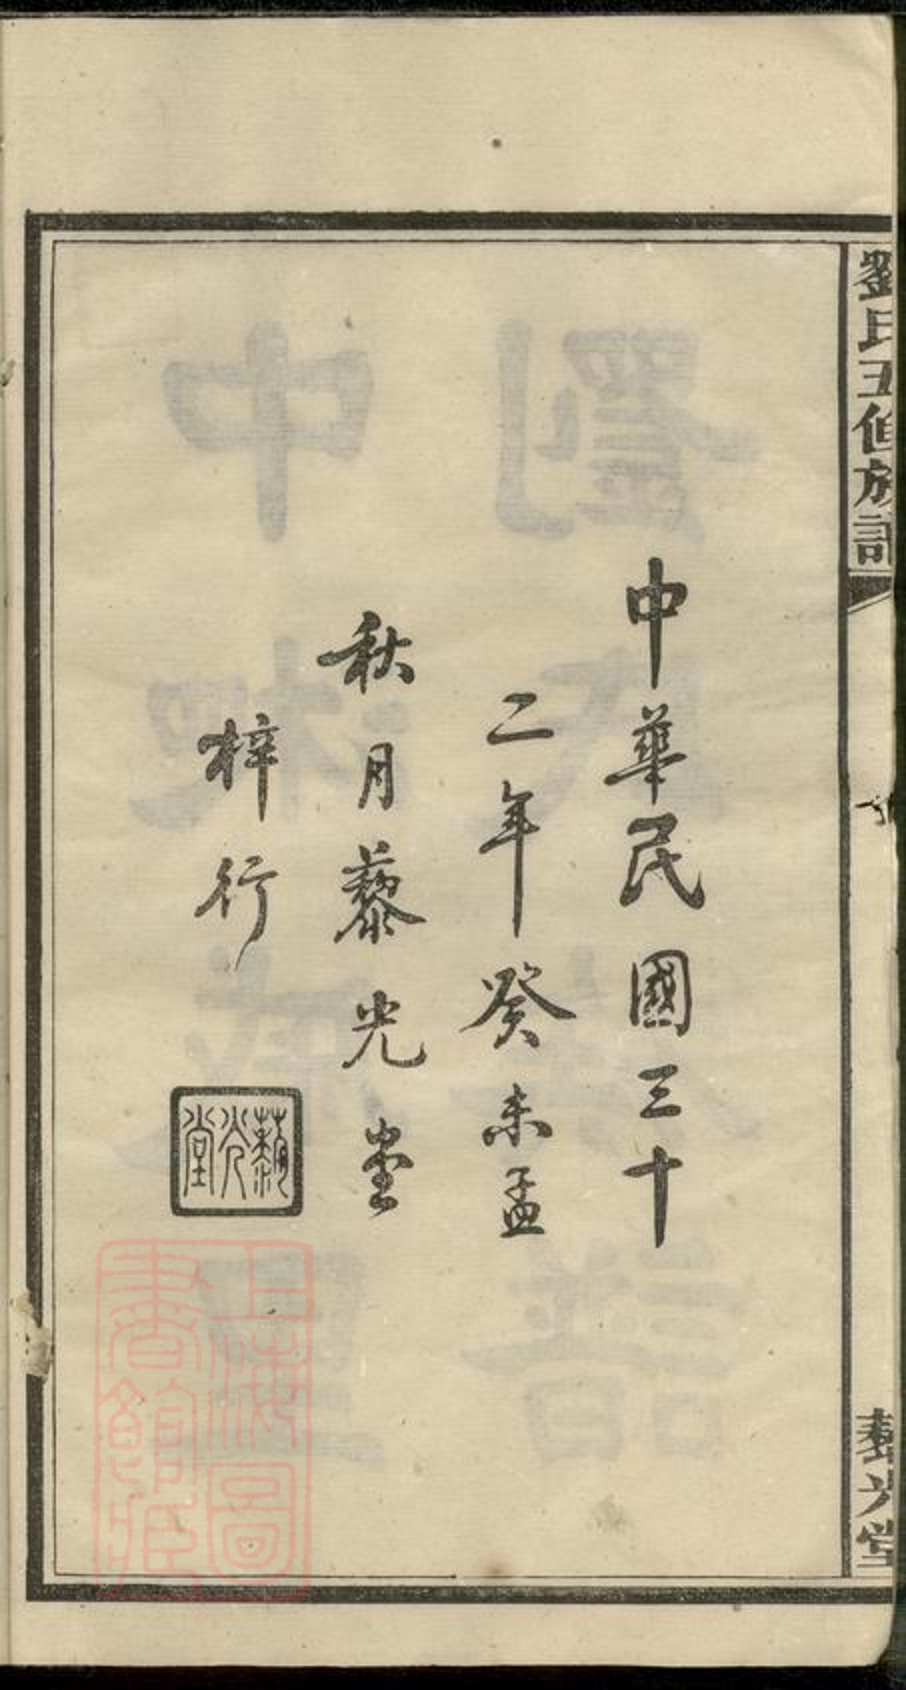 劉氏五修族譜
中華民國三十
二年癸未孟
秋月藜光堂
梓行
藜光堂
上海圖
書館藏
藜光堂